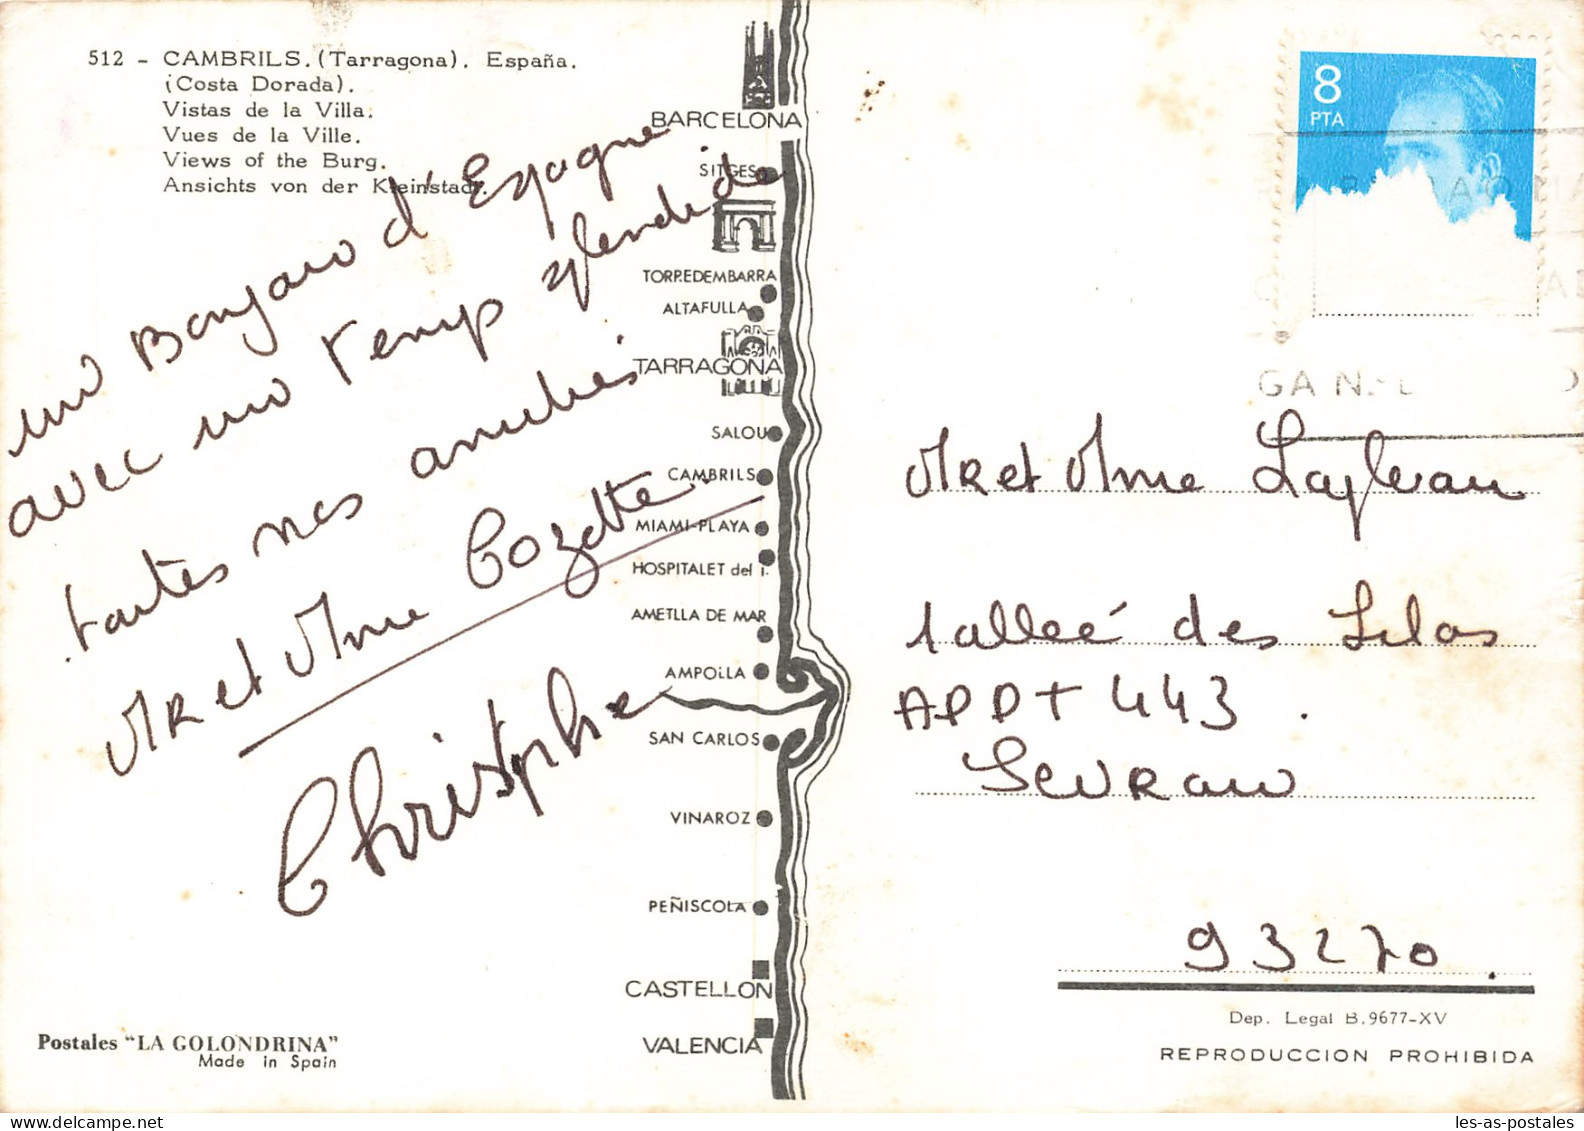 512 - CAMBRILS. (Tarragona). España.
(Costa Dorada).
Vistas de la Villa.
Vues de la Ville.
Views of the Burg.
Ansichts von der Kleinstadt.
un Bonjour d'Espagne
avec un temps splendide
toutes nos amitiés
MR et Mme Cozette
Christophe
BARCELONA
SITGES
TORREDEMBARRA
ALTAFULLA
TARRAGONA
SALOU
CAMBRILS
MIAMI-PLAYA
HOSPITALET del I.
AMETLLA DE MAR
AMPOLLA
SAN CARLOS
VINAROZ
PEÑISCOLA
CASTELLON
VALENCIA
Postales "LA GOLONDRINA"
Made in Spain
8
PTA
MR et Mme
1 alleé des Lilas
APPT 443.
SEVRAN
93270.
Dep. Legal B. 9677-XV
REPRODUCCION PROHIBIDA
les-as-postales